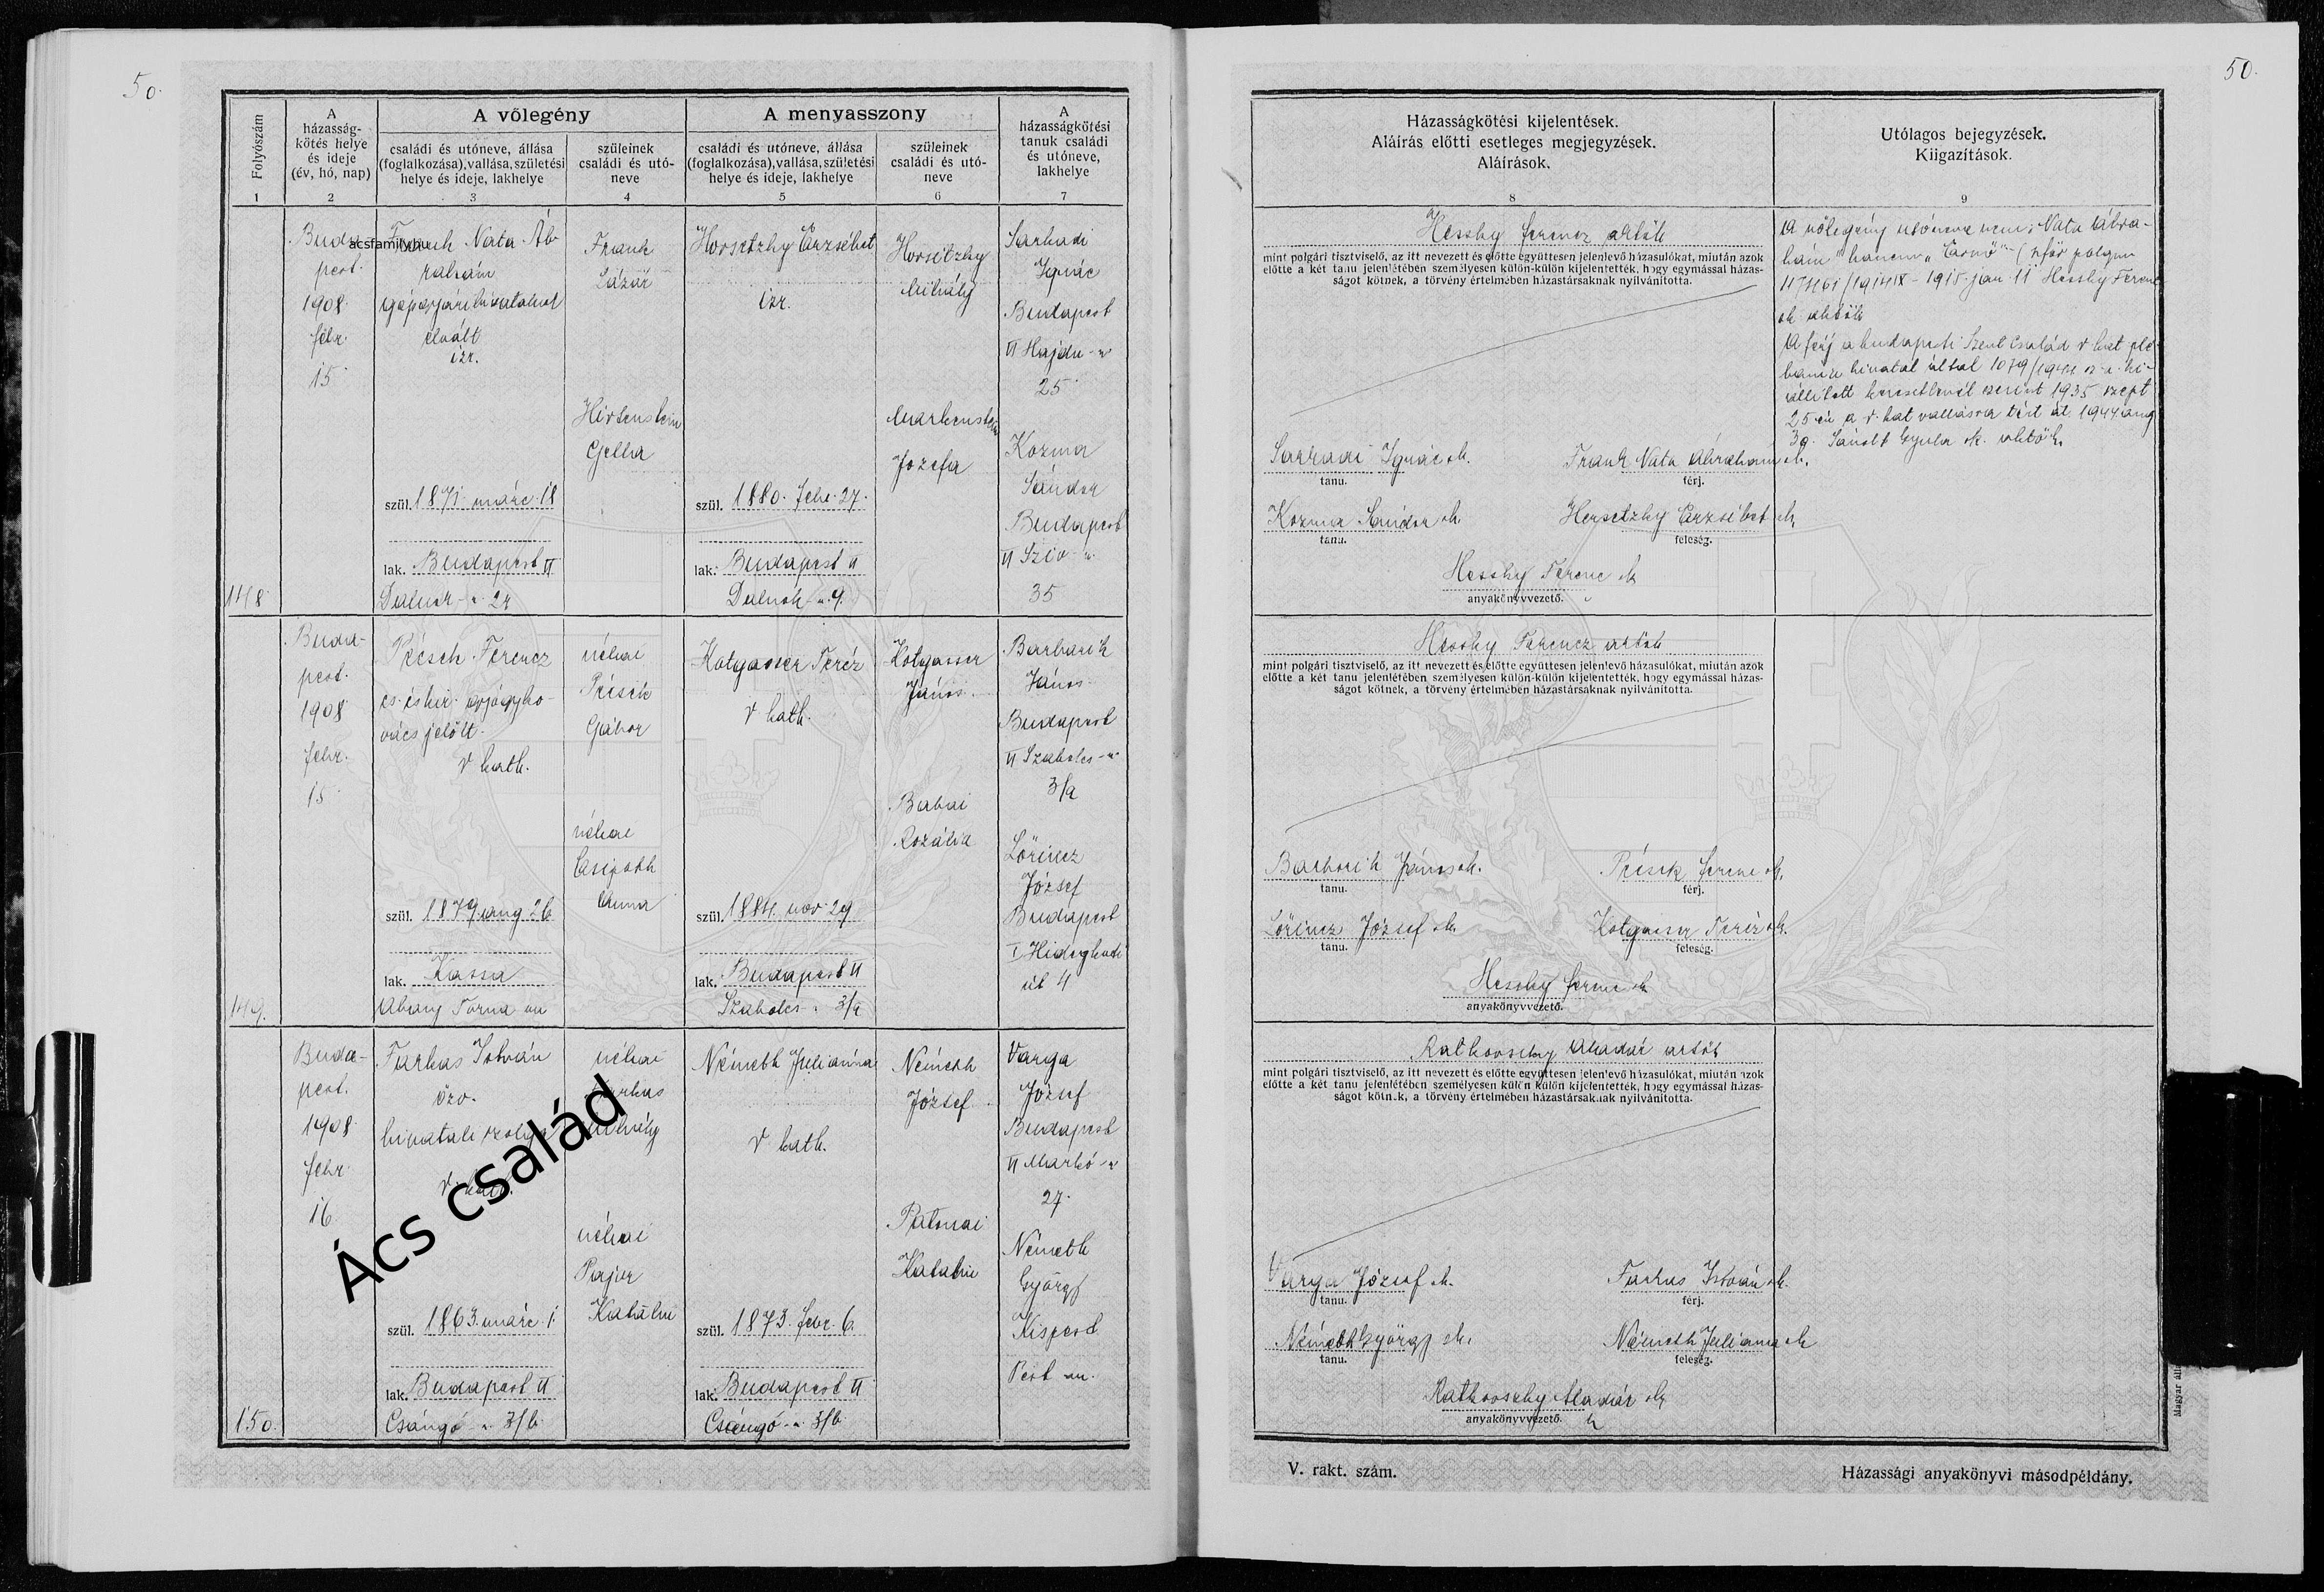 50.
50.
Folyószám
1
A
házasság-
kötés helye
és ideje
(év, hó, nap)
2
A vőlegény
családi és utóneve, állása
(foglalkozása), vallása, születési
helye és ideje, lakhelye
3
szüleinek
családi és utó-
neve
4
A menyasszony
családi és utóneve, állása
(foglalkozása), vallása, születési
helye és ideje, lakhelye
5
szüleinek
családi és utó-
neve
6
A
házasságkötési
tanuk családi
és utóneve,
lakhelye
7
148
Buda-
pest.
1908
febr.
15
acsfamily.hu
Frank Nata Áb-
rahám
elvált
izr.
szül. 1871. márc. 18
lak. Budapest VI
Dalnok u. 24
Frank
Lázár
Hirtenstein
Gella
Horsetzky Erzsébet
izr.
szül. 1880. febr. 27.
lak. Budapest VI
Dalnok u. 9.
Horsitzky
Mihály
Markenstein
Jozefa
Sarkadi
Ignác
Budapest
VI Hajdu-u
25
Kozma
Sándor
Budapest
VI Sziv u.
35
149.
Buda-
pest.
1908
febr.
15
Pécsik Ferencz
cs. és kir. gyógyko-
vács jelölt.
r. kath.
szül. 1879. aug. 26
lak. Kassa
Abauj Torna m
néhai
Pécsik
Gábor
néhai
Anna
Holzgasser Teréz
r. kath.
szül. 1884. nov. 29
lak. Budapest VI
Szabolcs u. 3/a
Holzgasser
János.
Babai
Rozália
Barbarik
János
Budapest
VI Szabolcs-u
3/a
Lőrincz
József
Budapest
I Hidegkuti
út 4
150.
Buda-
pest.
1908
febr.
16
Farkas István
özv.
hivatali szolga
r. kath.
szül. 1863. márc. 1.
lak. Budapest VI
Csángó u. 3/b
néhai
Farkas
Mihály
néhai
Pajer
Katalin
Németh Julianna
r. kath.
szül. 1873. febr. 6.
lak. Budapest VI
Csángó u. 3/b
Németh
József
Patonai
Katalin
Varga
József
Budapest
VI Markó-u
27.
Németh
György
Kispest
Pest m.
Ács család
Házasságkötési kijelentések.
Aláírás előtti esetleges megjegyzések.
Aláírások.
8
Utólagos bejegyzések.
Kiigazítások.
9
Hessky Ferencz aktök
mint polgári tisztviselő, az itt nevezett és előtte együttesen jelenlevő házasulókat, miután azok
előtte a két tanu jelenlétében személyesen külön-külön kijelentették, hogy egymással házas-
ságot kötnek, a törvény értelmében házastársaknak nyilvánította.
Sarkadi Ignác sk.
tanu.
Frank Nata Ábrahám sk.
férj.
Kozma Sándor sk.
tanu.
Horsetzky Erzsébet sk.
feleség.
Hessky Ferenc sk
anyakönyvvezető.
A vőlegény utóneve nem „Nata Ábra-
hám" hanem „Ernő"
1915. jan 11 Hessky Ferenc
sk aktök
A férj a budapesti Szent Család r. kat. plé-
bánia hivatal által 1079/1944 sz. a. ki-
állított keresztlevél szerint 1935 szept
25-én a r. kat vallásra tért át. 1944 aug
30. Gyula sk. aktök.
Hessky Ferencz aktök
mint polgári tisztviselő, az itt nevezett és előtte együttesen jelenlevő házasulókat, miután azok
előtte a két tanu jelenlétében személyesen külön-külön kijelentették, hogy egymással házas-
ságot kötnek, a törvény értelmében házastársaknak nyilvánította.
Barbarik János sk.
tanu.
Pécsik Ferenc sk.
férj.
Lőrincz József sk.
tanu.
Holzgasser Teréz sk.
feleség.
Hessky Ferenc sk
anyakönyvvezető.
Rathovszky Aladár aktök
mint polgári tisztviselő, az itt nevezett és előtte együttesen jelenlevő házasulókat, miután azok
előtte a két tanu jelenlétében személyesen külön külön kijelentették, hogy egymással házas-
ságot kötnek, a törvény értelmében házastársaknak nyilvánította.
Varga József sk.
tanu.
Farkas István sk.
férj.
Németh György sk.
tanu.
Németh Julianna sk
feleség.
Rathovszky Aladár sk
anyakönyvvezető.
V. rakt. szám.
Házassági anyakönyvi másodpéldány.
Magyar áll